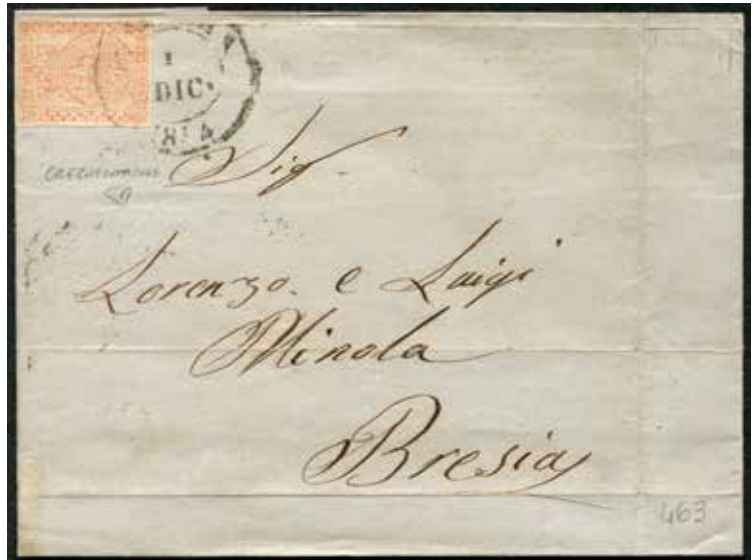 1
DIC.
Sig.
Lorenzo. e Luigi
Minola
Bresia
463